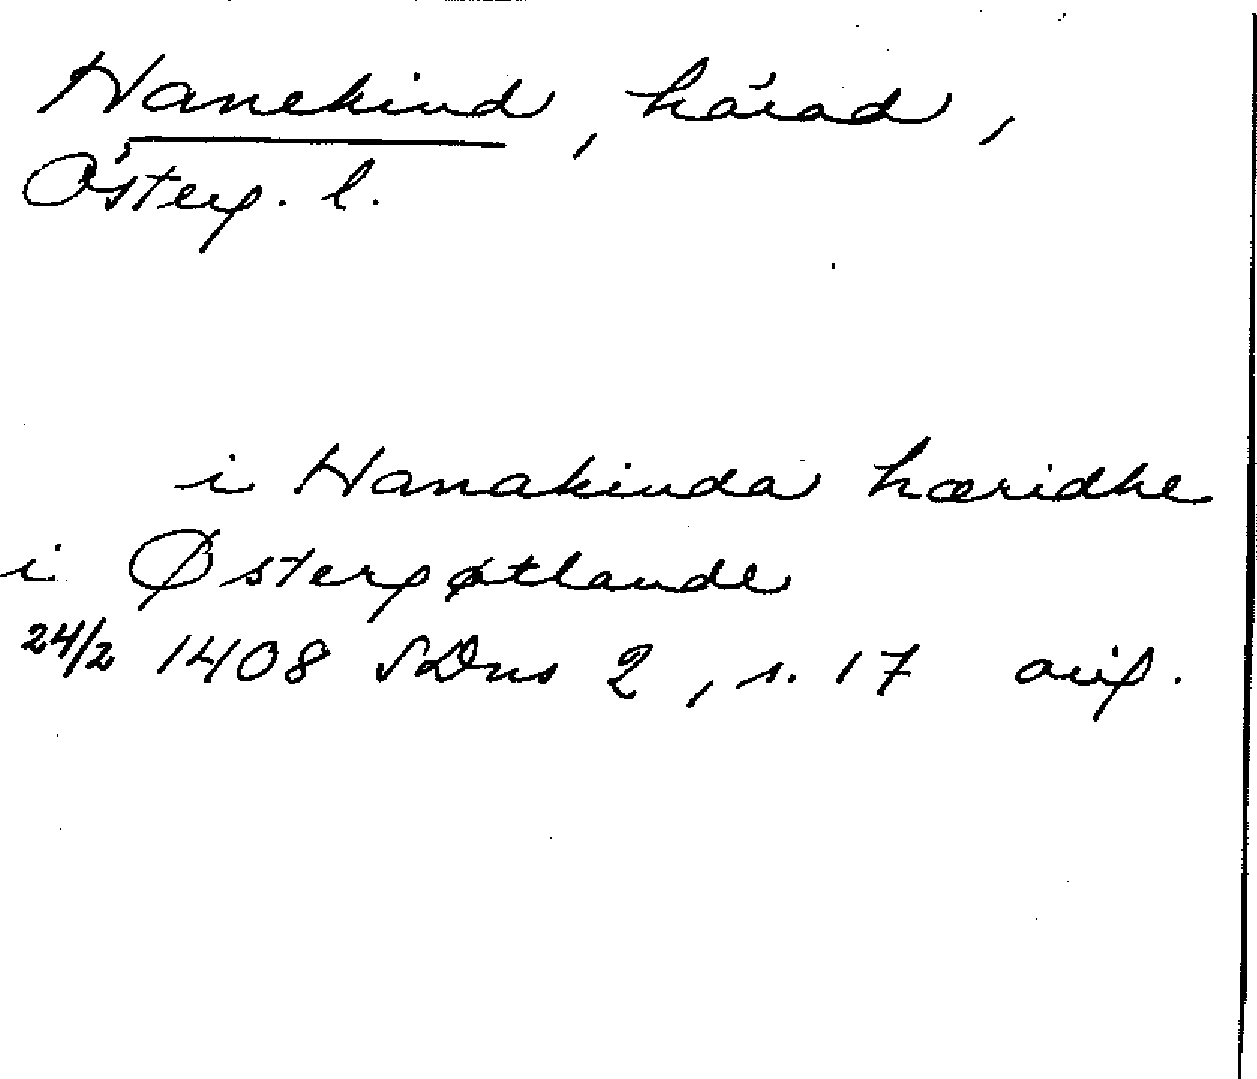 Hanekind, härad,
Österg. l.
i Hanakinda hæridhe
i Østergøtlande
24/2 1408 SDns 2, s. 17 orig.